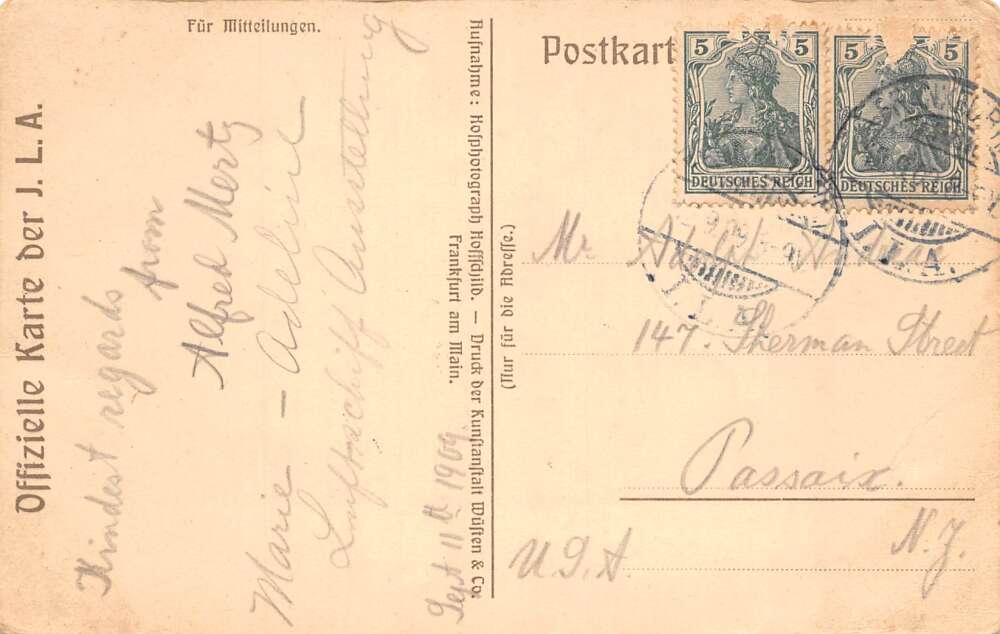 Offizielle Karte der J. L. A.
Für Mitteilungen.
Kindest regards
from
Alfred Mertz
Marie - Adeline
Luftschiff Ausstellung
Sept 11th 1909
Aufnahme: Hofphotograph Hoffschild. — Druck der Kunstanstalt Wüsten & Co.
Frankfurt am Main.
(Nur für die Adresse.)
Postkart
5 5
DEUTSCHES REICH
5 5
DEUTSCHES REICH
Mr Adolph
147. Sherman Street
Passaic.
N. J.
U. S. A.